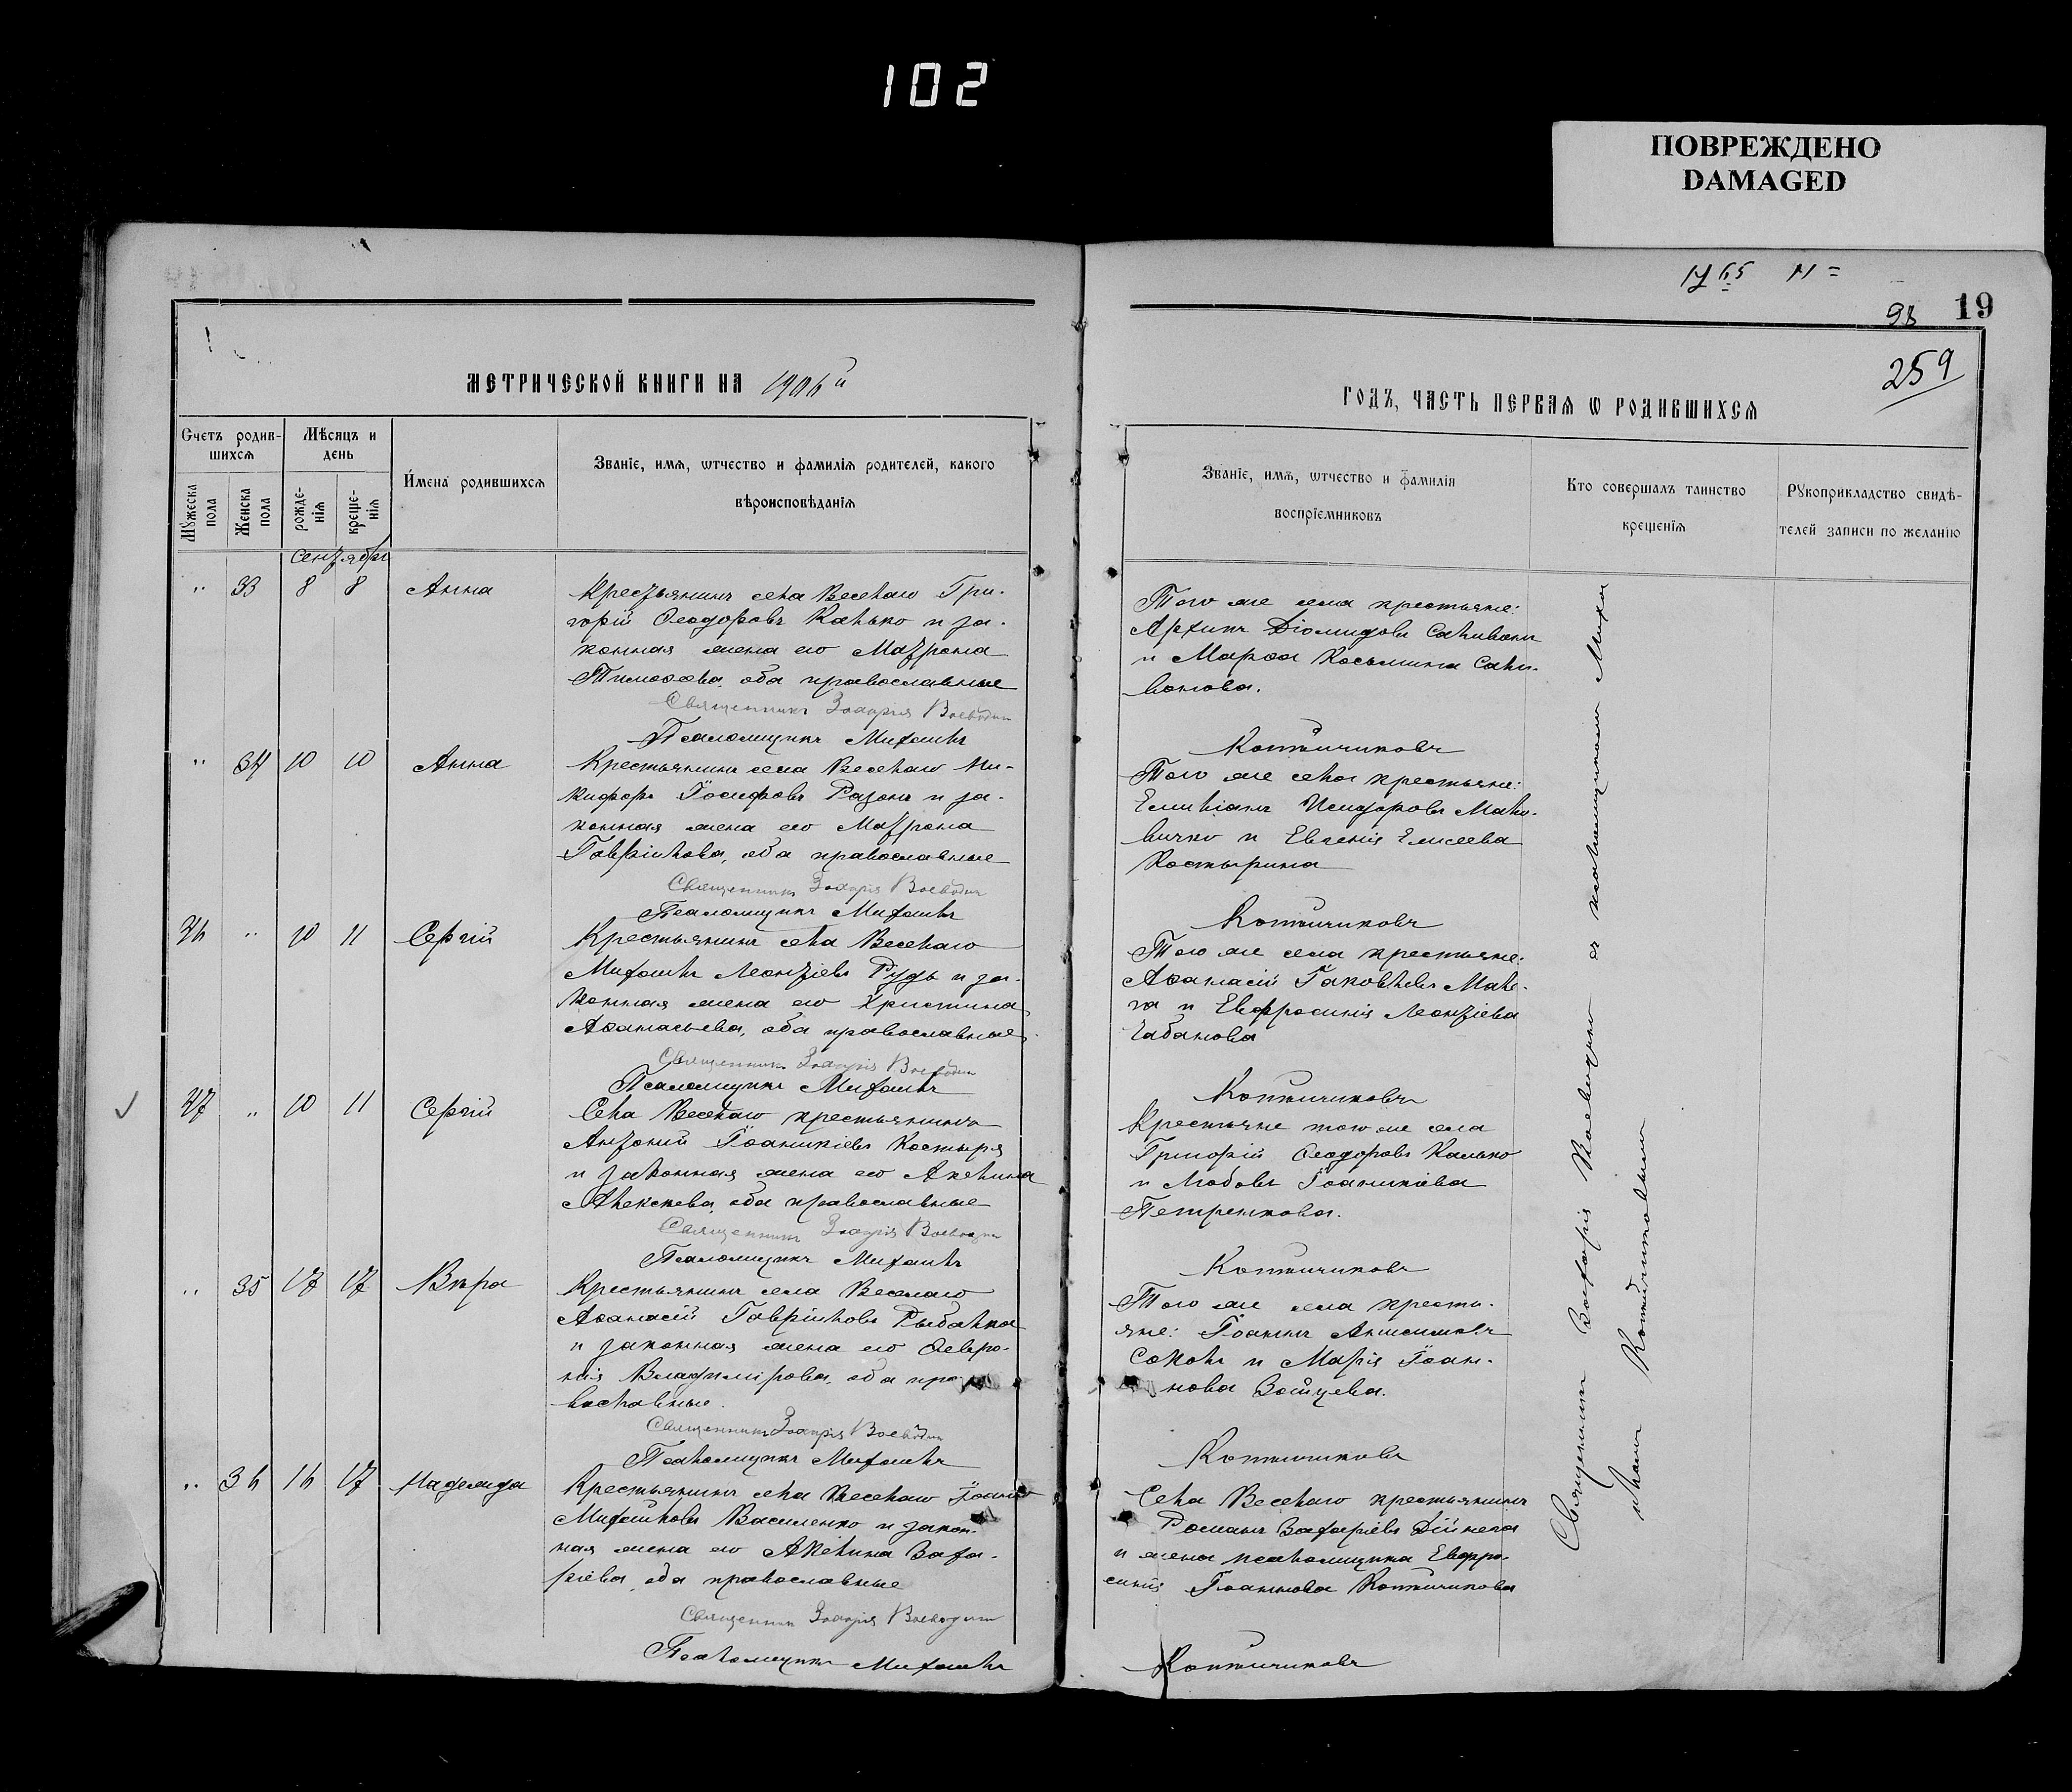 102
ПОВРЕЖДЕНО
DAMAGED
19
98
259
МЕТРИЧЕСКОЙ КНИГИ НА 1906й
ГОДЪ, ЧАСТЬ ПЕРВАЯ Ѡ РОДИВШИХСЯ
Счетъ родив-
шихся
Мѣсяцъ и
день
Мужеска пола
Женска пола
рожде-
нія
креще-
нія
Имена родившихся
Званіе, имя, ѡтчество и фамилія родителей, какого
вѣроисповѣданія
Званіе, имя, ѡтчество и фамилія
воспріемниковъ
Кто совершалъ таинство
крещенія
Рукоприкладство свидѣ-
телей записи по желанію
Сентябрь
" 33 8 8 Анна
Крестьянинъ села Веселаго Гри-
горій Ѳеодоровъ Калько и за-
конная жена его Матрона
Тимоѳеева, оба православные
Священникъ Захарія Воеводин
Псаломщикъ Михаилъ
Того же села крестьяне:
Архипъ Діомидовъ Саливонъ
и Марѳа Косьмина Сали-
вонова.
Котвичиковъ
" 34 10 10 Анна
Крестьянинъ села Веселаго Ни-
кифоръ Іосифовъ Разонъ и за-
конная жена его Матрона
Гавріилова, оба православные
Священникъ Захарія Воеводин
Псаломщикъ Михаилъ
Того же села крестьяне:
Емиліанъ Исидоровъ Мали-
вичко и Евгенія Елисеева
Костырина
Котвичиковъ
46 " 10 11 Сергій
Крестьянинъ села Веселаго
Михаилъ Леонтіевъ Рудь и за-
конная жена его Христина
Аѳанасьева, оба православные
Священникъ Захарія Воеводин
Псаломщикъ Михаилъ
Того же села крестьяне:
Аѳанасій Іаковлевъ Мале-
га и Евфросинія Леонтіева
Чабанова
Котвичиковъ
47 " 10 11 Сергій
Села Веселаго крестьянинъ
Антоній Іоанникіевъ Костыря
и законная жена его Акелина
Алексѣева, оба православные
Священникъ Захарія Воеводин
Псаломщикъ Михаилъ
Крестьяне того же села
Григорій Ѳеодоровъ Калько
и Любовь Іоанникіева
Петренкова.
Котвичиковъ
" 35 17 17 Вѣра
Крестьянинъ села Веселаго
Аѳанасій Гавріиловъ Рыбалка
и законная жена его Февро-
нія Владимірова, оба пра-
вославные.
Священникъ Захарія Воеводин
Псаломщикъ Михаилъ
Того же села кресть-
яне: Іоаннъ Анисимовъ
Соколъ и Марія Іоан-
нова Зайцева.
Котвичиковъ
" 36 16 17 Надежда
Крестьянинъ села Веселаго Іоаннъ
Михайловъ Василенко и закон-
ная жена его Акелина Заха-
ріева, оба православные
Священникъ Захарія Воеводин
Псаломщикъ Михаилъ
Села Веселаго крестьянинъ
Романъ Захаріевъ Дійнега
и жена псаломщика Евфро-
синія Іоаннова Котвичикова
Котвичиковъ
Священникъ Захарія Воеводин с псаломщикомъ Миха-
иломъ Котвичиковымъ